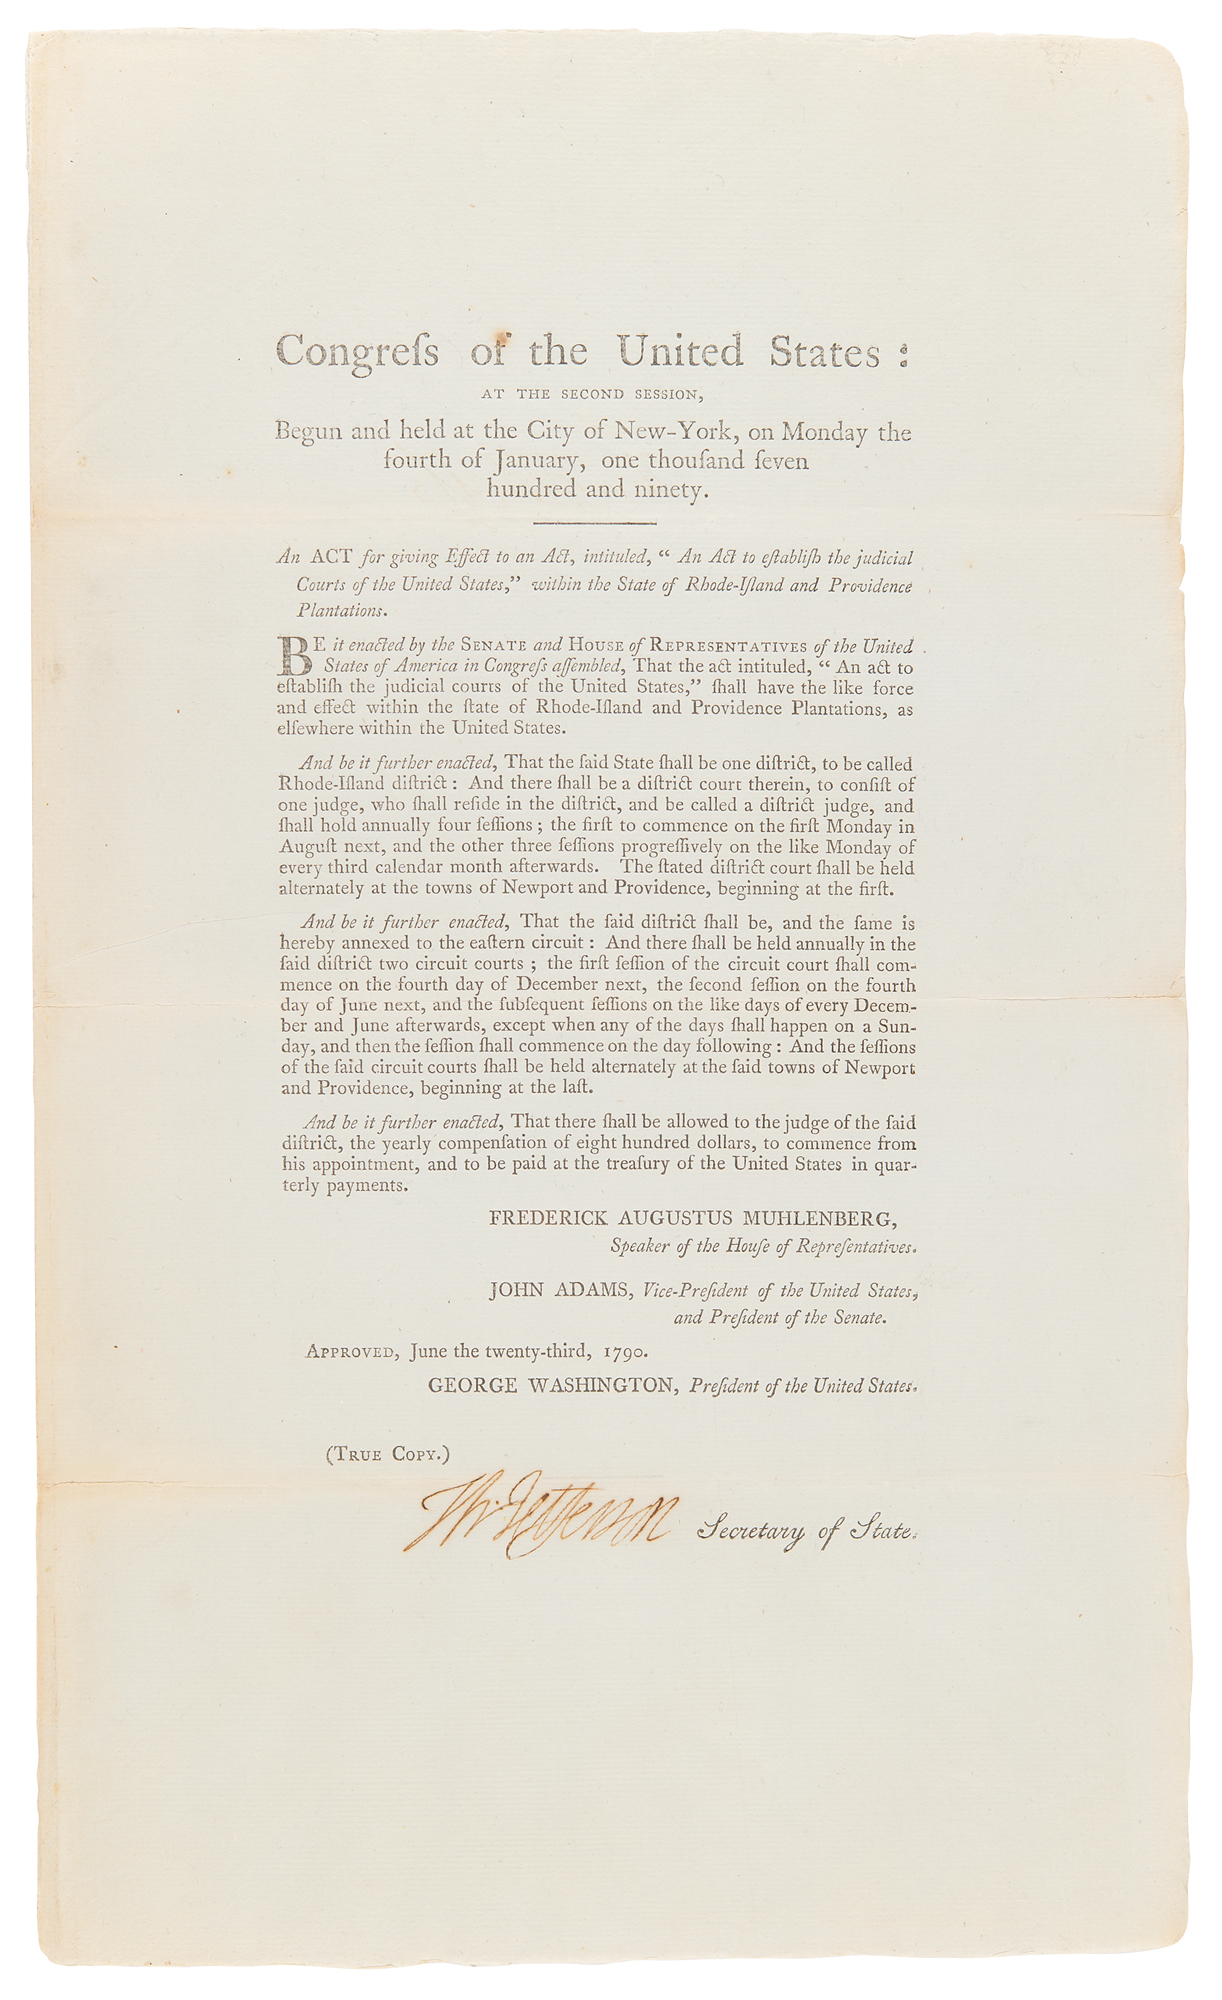 Congreſs of the United States :
AT THE SECOND SESSION,
Begun and held at the City of New-York, on Monday the
fourth of January, one thouſand ſeven
hundred and ninety.
An ACT for giving Effect to an Act, intituled, “ An Act to eſtabliſh the judicial
Courts of the United States,” within the State of Rhode-Iſland and Providence
Plantations.
BE it enacted by the SENATE and HOUSE of REPRESENTATIVES of the United
States of America in Congreſs aſſembled, That the act intituled, “ An act to
eſtabliſh the judicial courts of the United States,” ſhall have the like force
and effect within the ſtate of Rhode-Iſland and Providence Plantations, as
elſewhere within the United States.
And be it further enacted, That the ſaid State ſhall be one diſtrict, to be called
Rhode-Iſland diſtrict : And there ſhall be a diſtrict court therein, to conſiſt of
one judge, who ſhall reſide in the diſtrict, and be called a diſtrict judge, and
ſhall hold annually four ſeſſions ; the firſt to commence on the firſt Monday in
Auguſt next, and the other three ſeſſions progreſſively on the like Monday of
every third calendar month afterwards. The ſtated diſtrict court ſhall be held
alternately at the towns of Newport and Providence, beginning at the firſt.
And be it further enacted, That the ſaid diſtrict ſhall be, and the ſame is
hereby annexed to the eaſtern circuit : And there ſhall be held annually in the
ſaid diſtrict two circuit courts ; the firſt ſeſſion of the circuit court ſhall com-
mence on the fourth day of December next, the ſecond ſeſſion on the fourth
day of June next, and the ſubſequent ſeſſions on the like days of every Decem-
ber and June afterwards, except when any of the days ſhall happen on a Sun-
day, and then the ſeſſion ſhall commence on the day following : And the ſeſſions
of the ſaid circuit courts ſhall be held alternately at the ſaid towns of Newport
and Providence, beginning at the laſt.
And be it further enacted, That there ſhall be allowed to the judge of the ſaid
diſtrict, the yearly compenſation of eight hundred dollars, to commence from
his appointment, and to be paid at the treaſury of the United States in quar-
terly payments.
FREDERICK AUGUSTUS MUHLENBERG,
Speaker of the Houſe of Repreſentatives.
JOHN ADAMS, Vice-Preſident of the United States,
and Preſident of the Senate.
APPROVED, June the twenty-third, 1790.
GEORGE WASHINGTON, Preſident of the United States.
(TRUE COPY.)
Th: Jefferson Secretary of State.